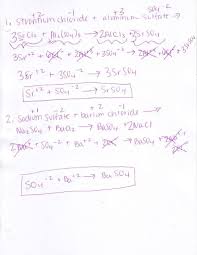 +2 -1 +3 SO4 -2
1. strontium chloride + aluminum sulfate →
3SrCl2 + Al2(SO4)3 → 2AlCl3 + 3SrSO4
3Sr+2 + 6Cl- + 2Al+3 + 3SO4-2 → 2Al+3 + 6Cl- + 3SrSO4
3Sr+2 + 3SO4-2 → 3SrSO4
Sr+2 + SO4-2 → SrSO4
+2 -1
2. Sodium sulfate + barium chloride →
Na2SO4 + BaCl2 → BaSO4 + 2NaCl
+ SO4-2 + Ba+2 + → BaSO4 +
SO4-2 + Ba+2 → BaSO4